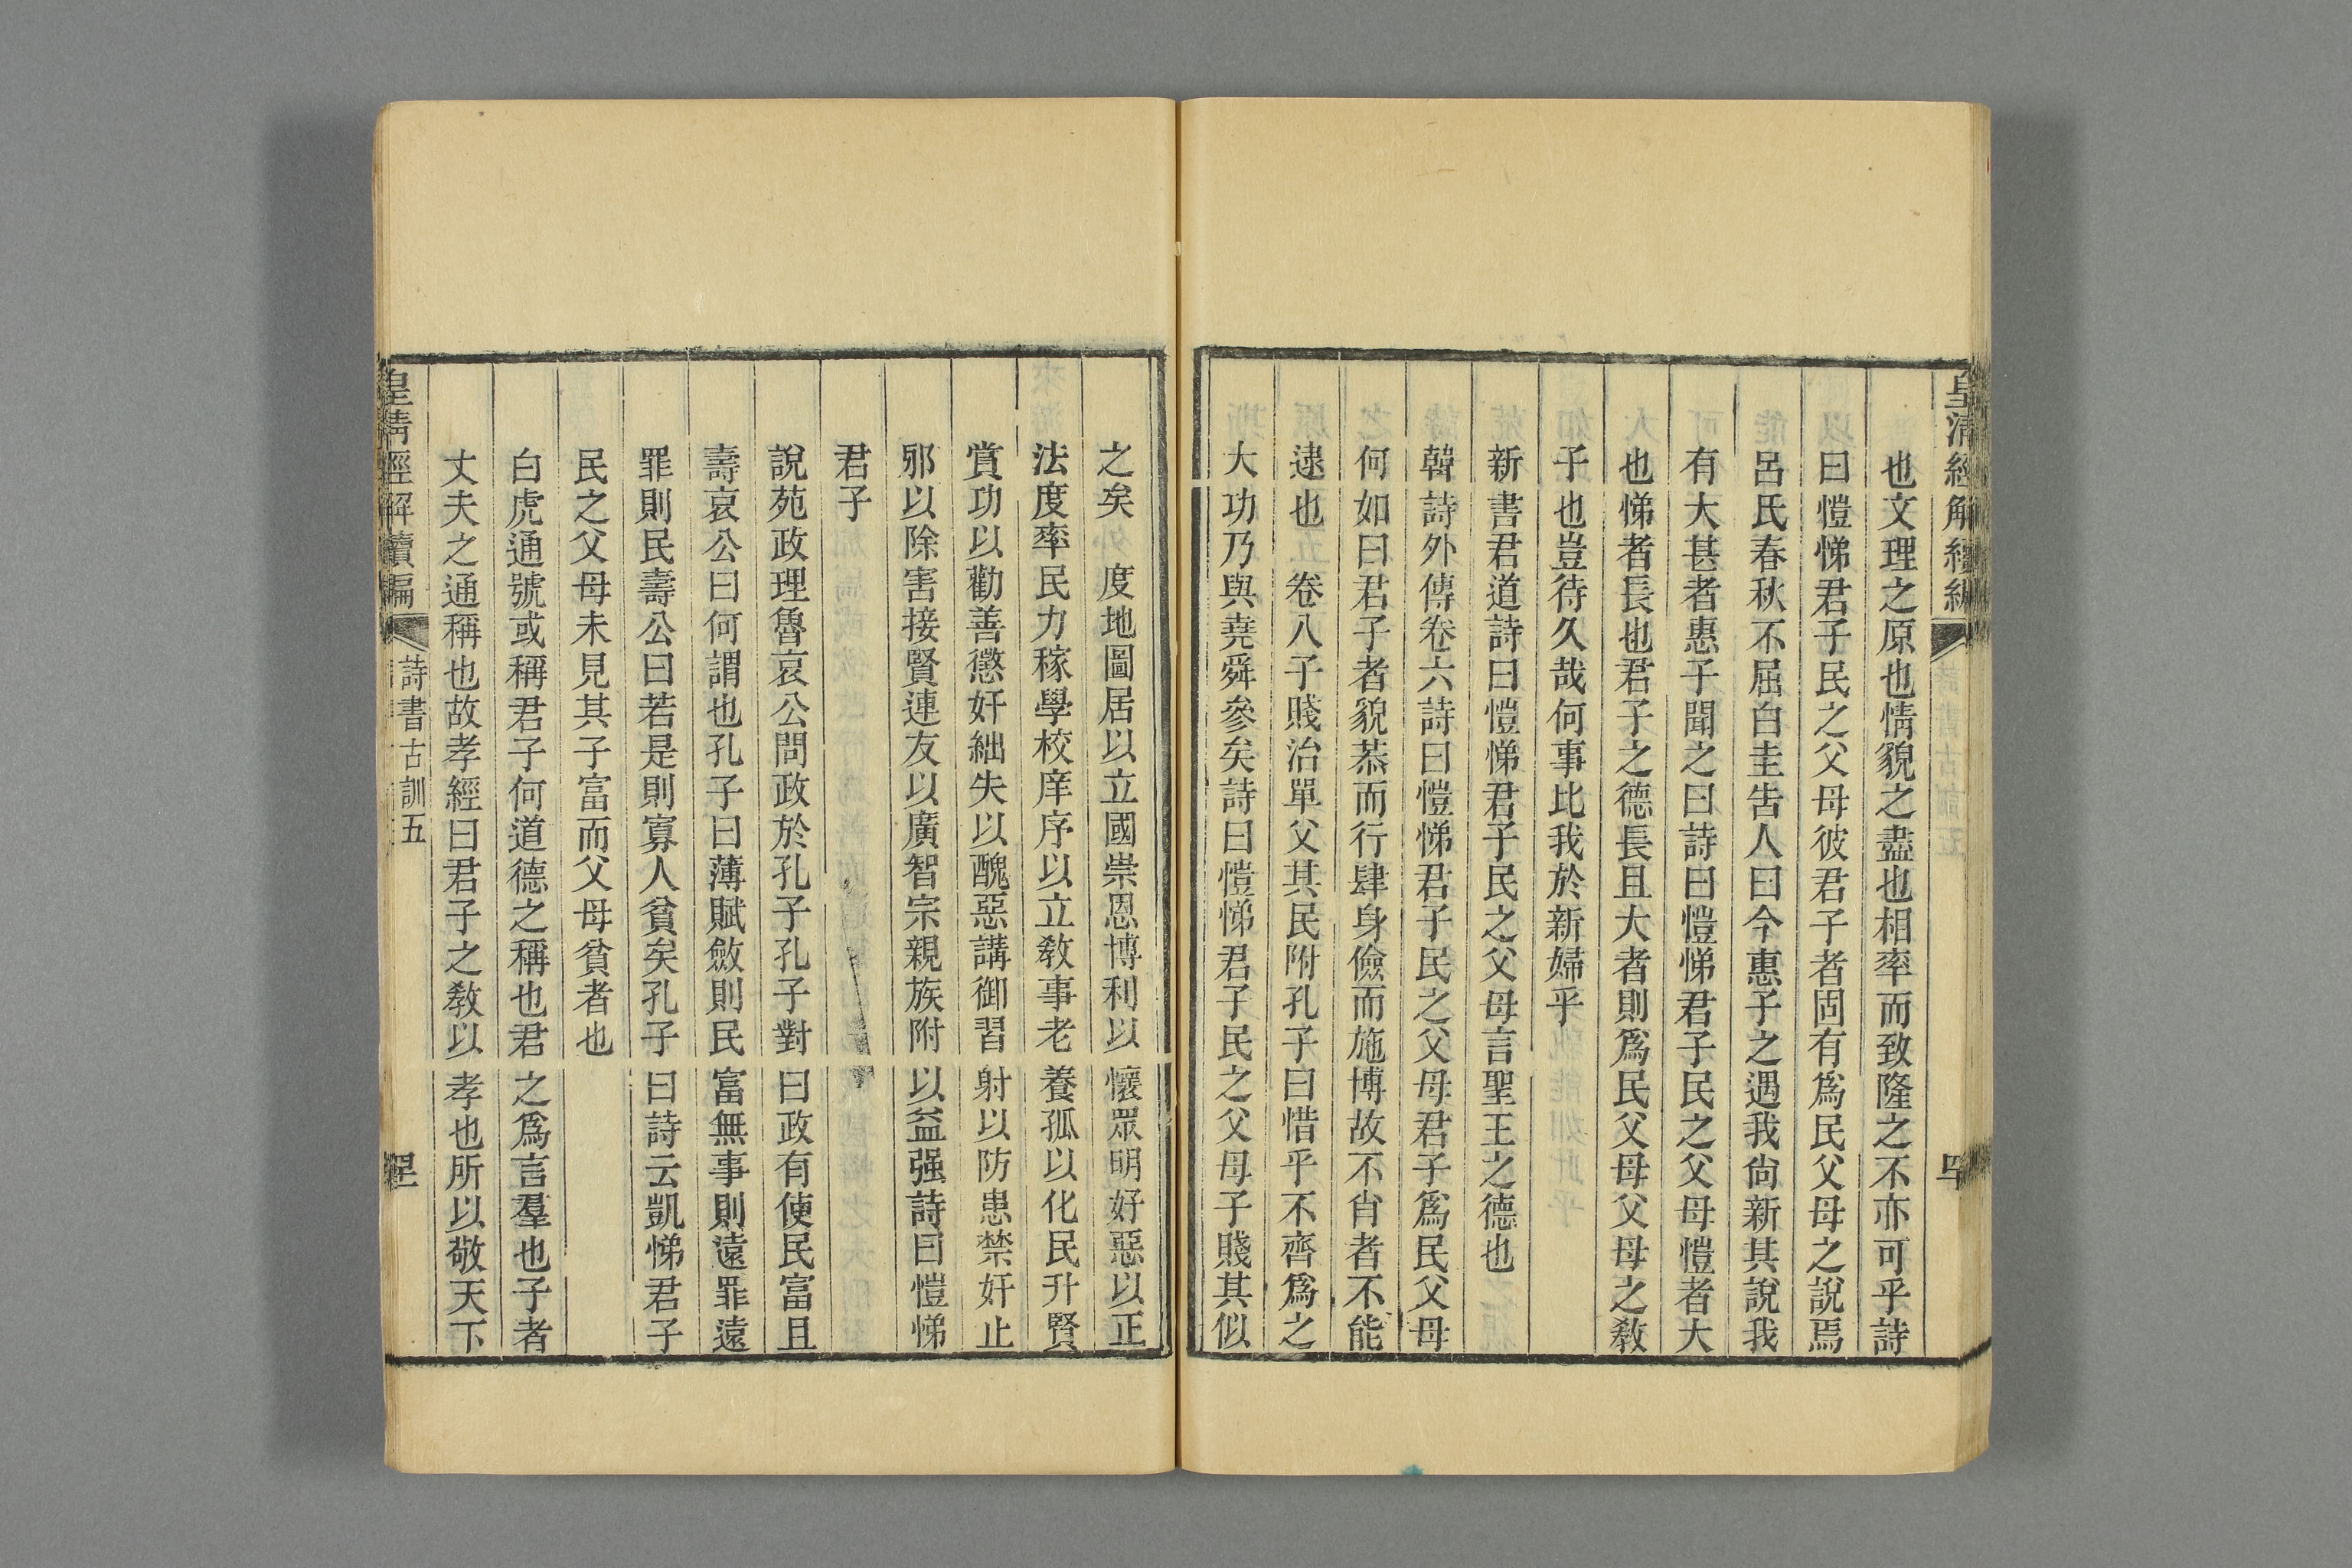 皇清經解續編
也文理之原也情貌之盡也相率而致隆之不亦可乎詩
曰愷悌君子民之父母彼君子者固有爲民父母之說焉
呂氏春秋不屈白圭告人曰今惠子之遇我尙新其說我
有大甚者惠子聞之曰詩曰愷悌君子民之父母愷者大
也悌者長也君子之德長且大者則爲民父母父母之敎
子也豈待久哉何事比我於新婦乎
新書君道詩曰愷悌君子民之父母言聖王之德也
韓詩外傳卷六詩曰愷悌君子民之父母君子爲民父母
何如曰君子者貌恭而行肆身儉而施博故不肖者不能
逮也　卷八子賤治單父其民附孔子曰惜乎不齊爲之
大功乃與堯舜參矣詩曰愷悌君子民之父母子賤其似
之矣　度地圖居以立國崇恩博利以懷眾明好惡以正
法度率民力稼學校庠序以立敎事老養孤以化民升賢
賞功以勸善懲奸絀失以醜惡講御習射以防患禁奸止
邪以除害接賢連友以廣智宗親族附以益强詩曰愷悌
君子
說苑政理魯哀公問政於孔子孔子對曰政有使民富且
壽哀公曰何謂也孔子曰薄賦斂則民富無事則遠罪遠
罪則民壽公曰若是則寡人貧矣孔子曰詩云凱悌君子
民之父母未見其子富而父母貧者也
白虎通號或稱君子何道德之稱也君之爲言羣也子者
丈夫之通稱也故孝經曰君子之敎以孝也所以敬天下
皇清經解續編
詩書古訓五